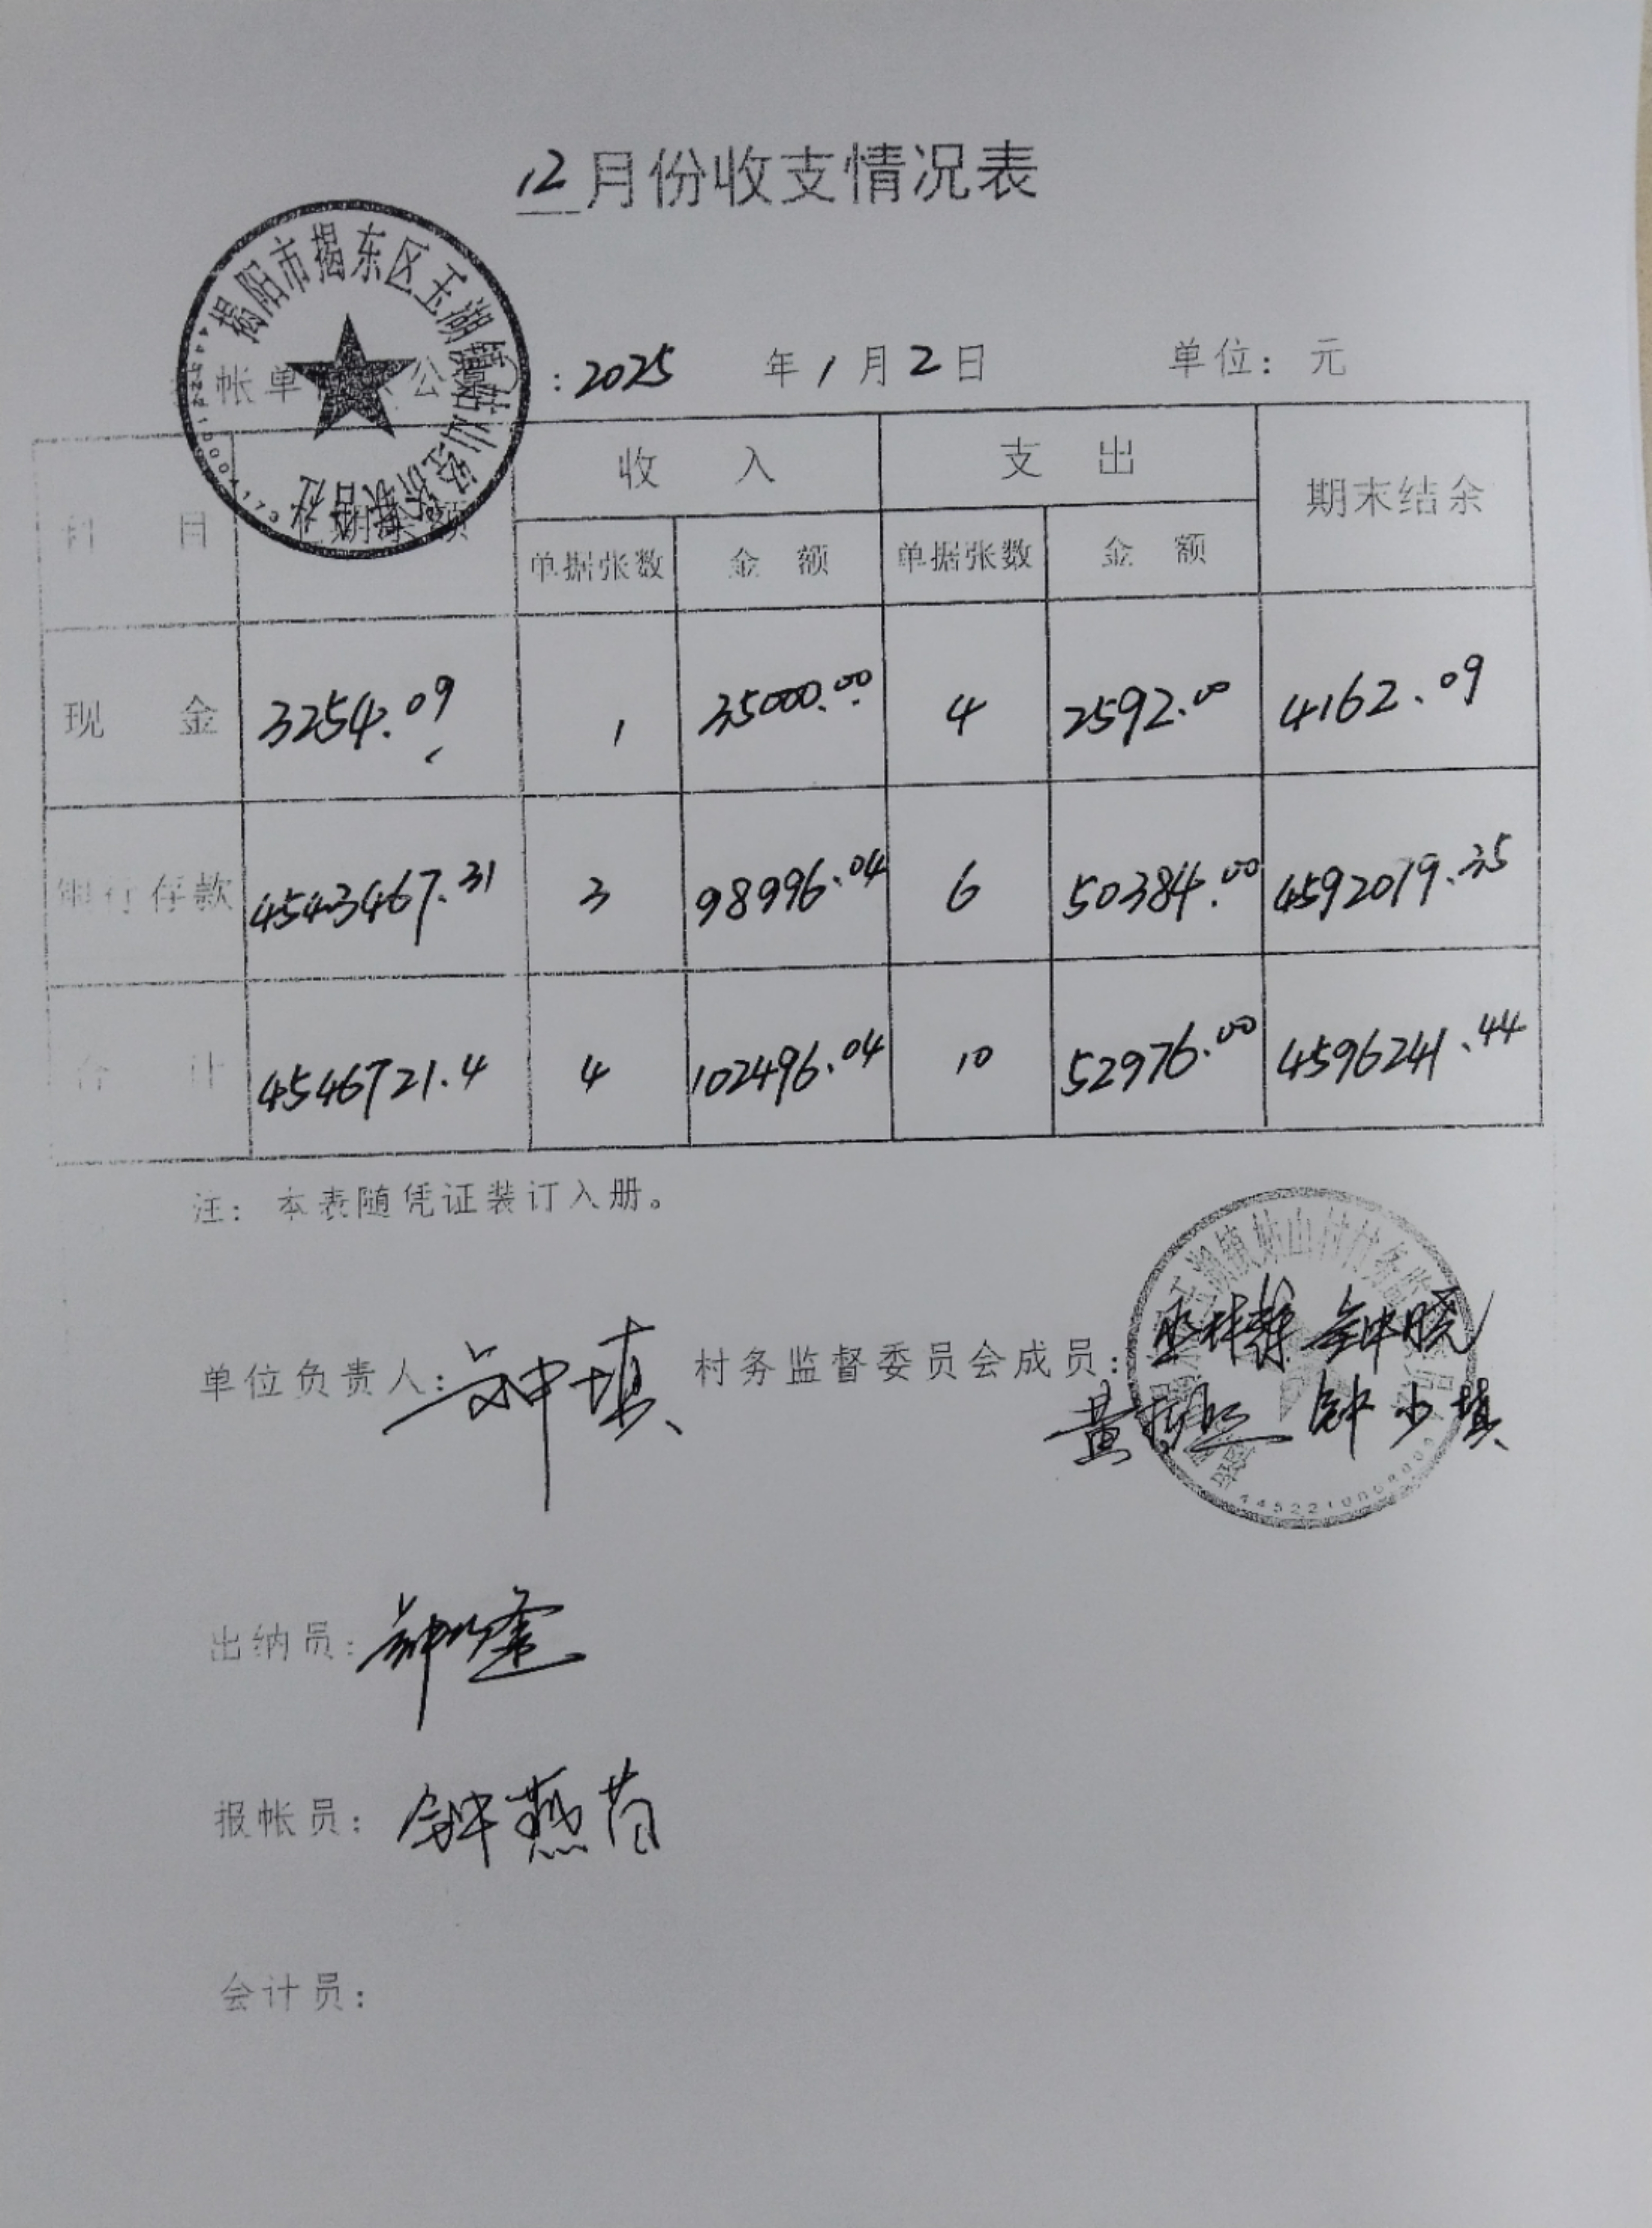 12月份收支情况表
揭阳市揭东区玉湖镇姑山经济联合社
帐单 公 : 2025 年 1 月 2 日 单位: 元
科 目 上期余额 收 入 支 出 期末结余
单据张数 金 额 单据张数 金 额
现 金 3254.09 1 35000.00 4 2592.00 4162.09
银行存款 4543467.31 3 98996.04 6 50384.00 4592079.35
合 计 4546721.4 4 102496.04 10 52976.00 4596241.44
注: 本表随凭证装订入册。
玉湖镇姑山村村务监
单位负责人: 钟填 村务监督委员会成员: 钟晓
黄 钟少填
出纳员: 钟
报帐员: 钟燕
会计员: